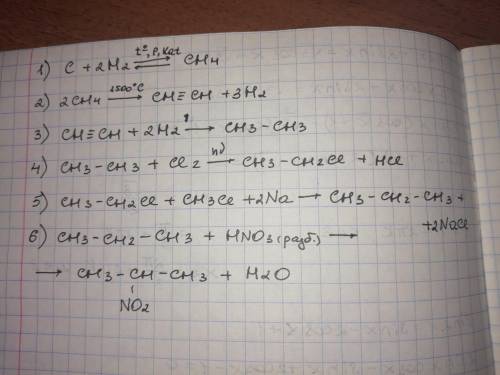 1) C + 2H2 ⇌ CH4 (t°, P, Kat)
2) 2CH4 —1500°C→ CH≡CH + 3H2
3) CH≡CH + 2H2 → CH3–CH3
4) CH3–CH3 + Cl2 → CH3–CH2Cl + HCl
5) CH3–CH2Cl + CH3Cl + 2Na → CH3–CH2–CH3 +
+2NaCl
6) CH3–CH2–CH3 + HNO3 (разб.) →
→ CH3–CH–CH3 + H2O
NO2